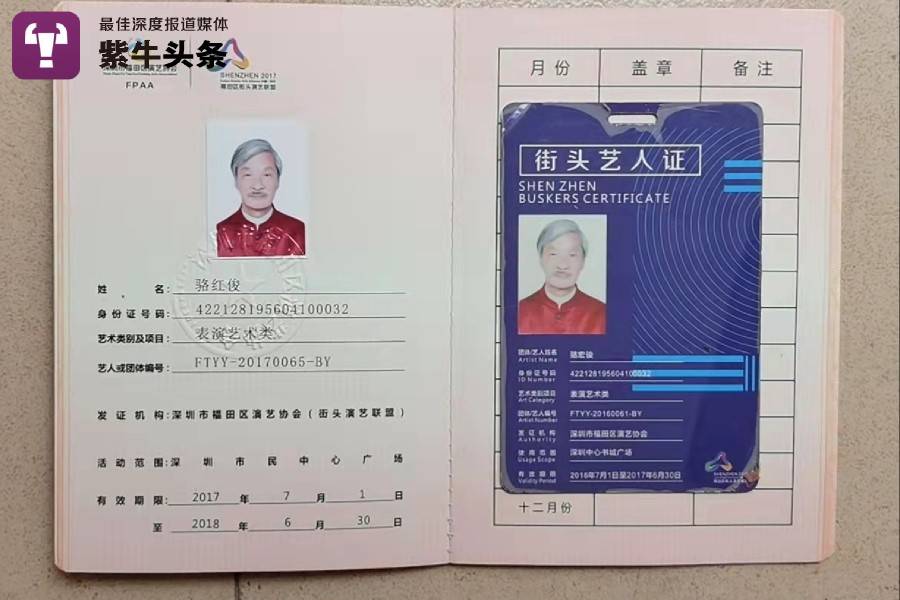 最佳深度报道媒体
紫牛头条
深圳市福田区演艺协会
FPAA
SHENZHEN 2017
福田区街头演艺联盟
姓 名: 骆红俊
身份证号码: 422128195604100032
艺术类别及项目: 表演艺术类
艺人或团体编号: FTYY-20170065-BY
发证机构:深圳市福田区演艺协会(街头演艺联盟)
活动范围:深圳市民中心广场
有效期限: 2017 年 7 月 1 日
至 2018 年 6 月 30 日
月份 盖章 备注
街头艺人证
SHEN ZHEN
BUSKERS CERTIFICATE
团体/艺人姓名 骆宏俊
Artist Name
身份证号码 422128195604100032
ID Number
艺术类别项目 表演艺术类
Art Category
团体/艺人编号 FTYY-20160061-BY
Artist Number
发证机构 深圳市福田区演艺协会
Authority
使用范围 深圳中心书城广场
Usage Scope
有效期限 2016年7月1日至2017年6月30日
Validity Period
SHENZHEN
十二月份